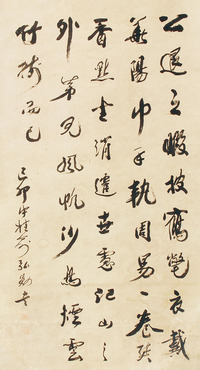 公退之暇披鶴氅衣戴
華陽巾手執周易一卷焚
香默坐消遣世慮江山之
外第見風帆沙鳥煙雲
竹樹而已
己卯